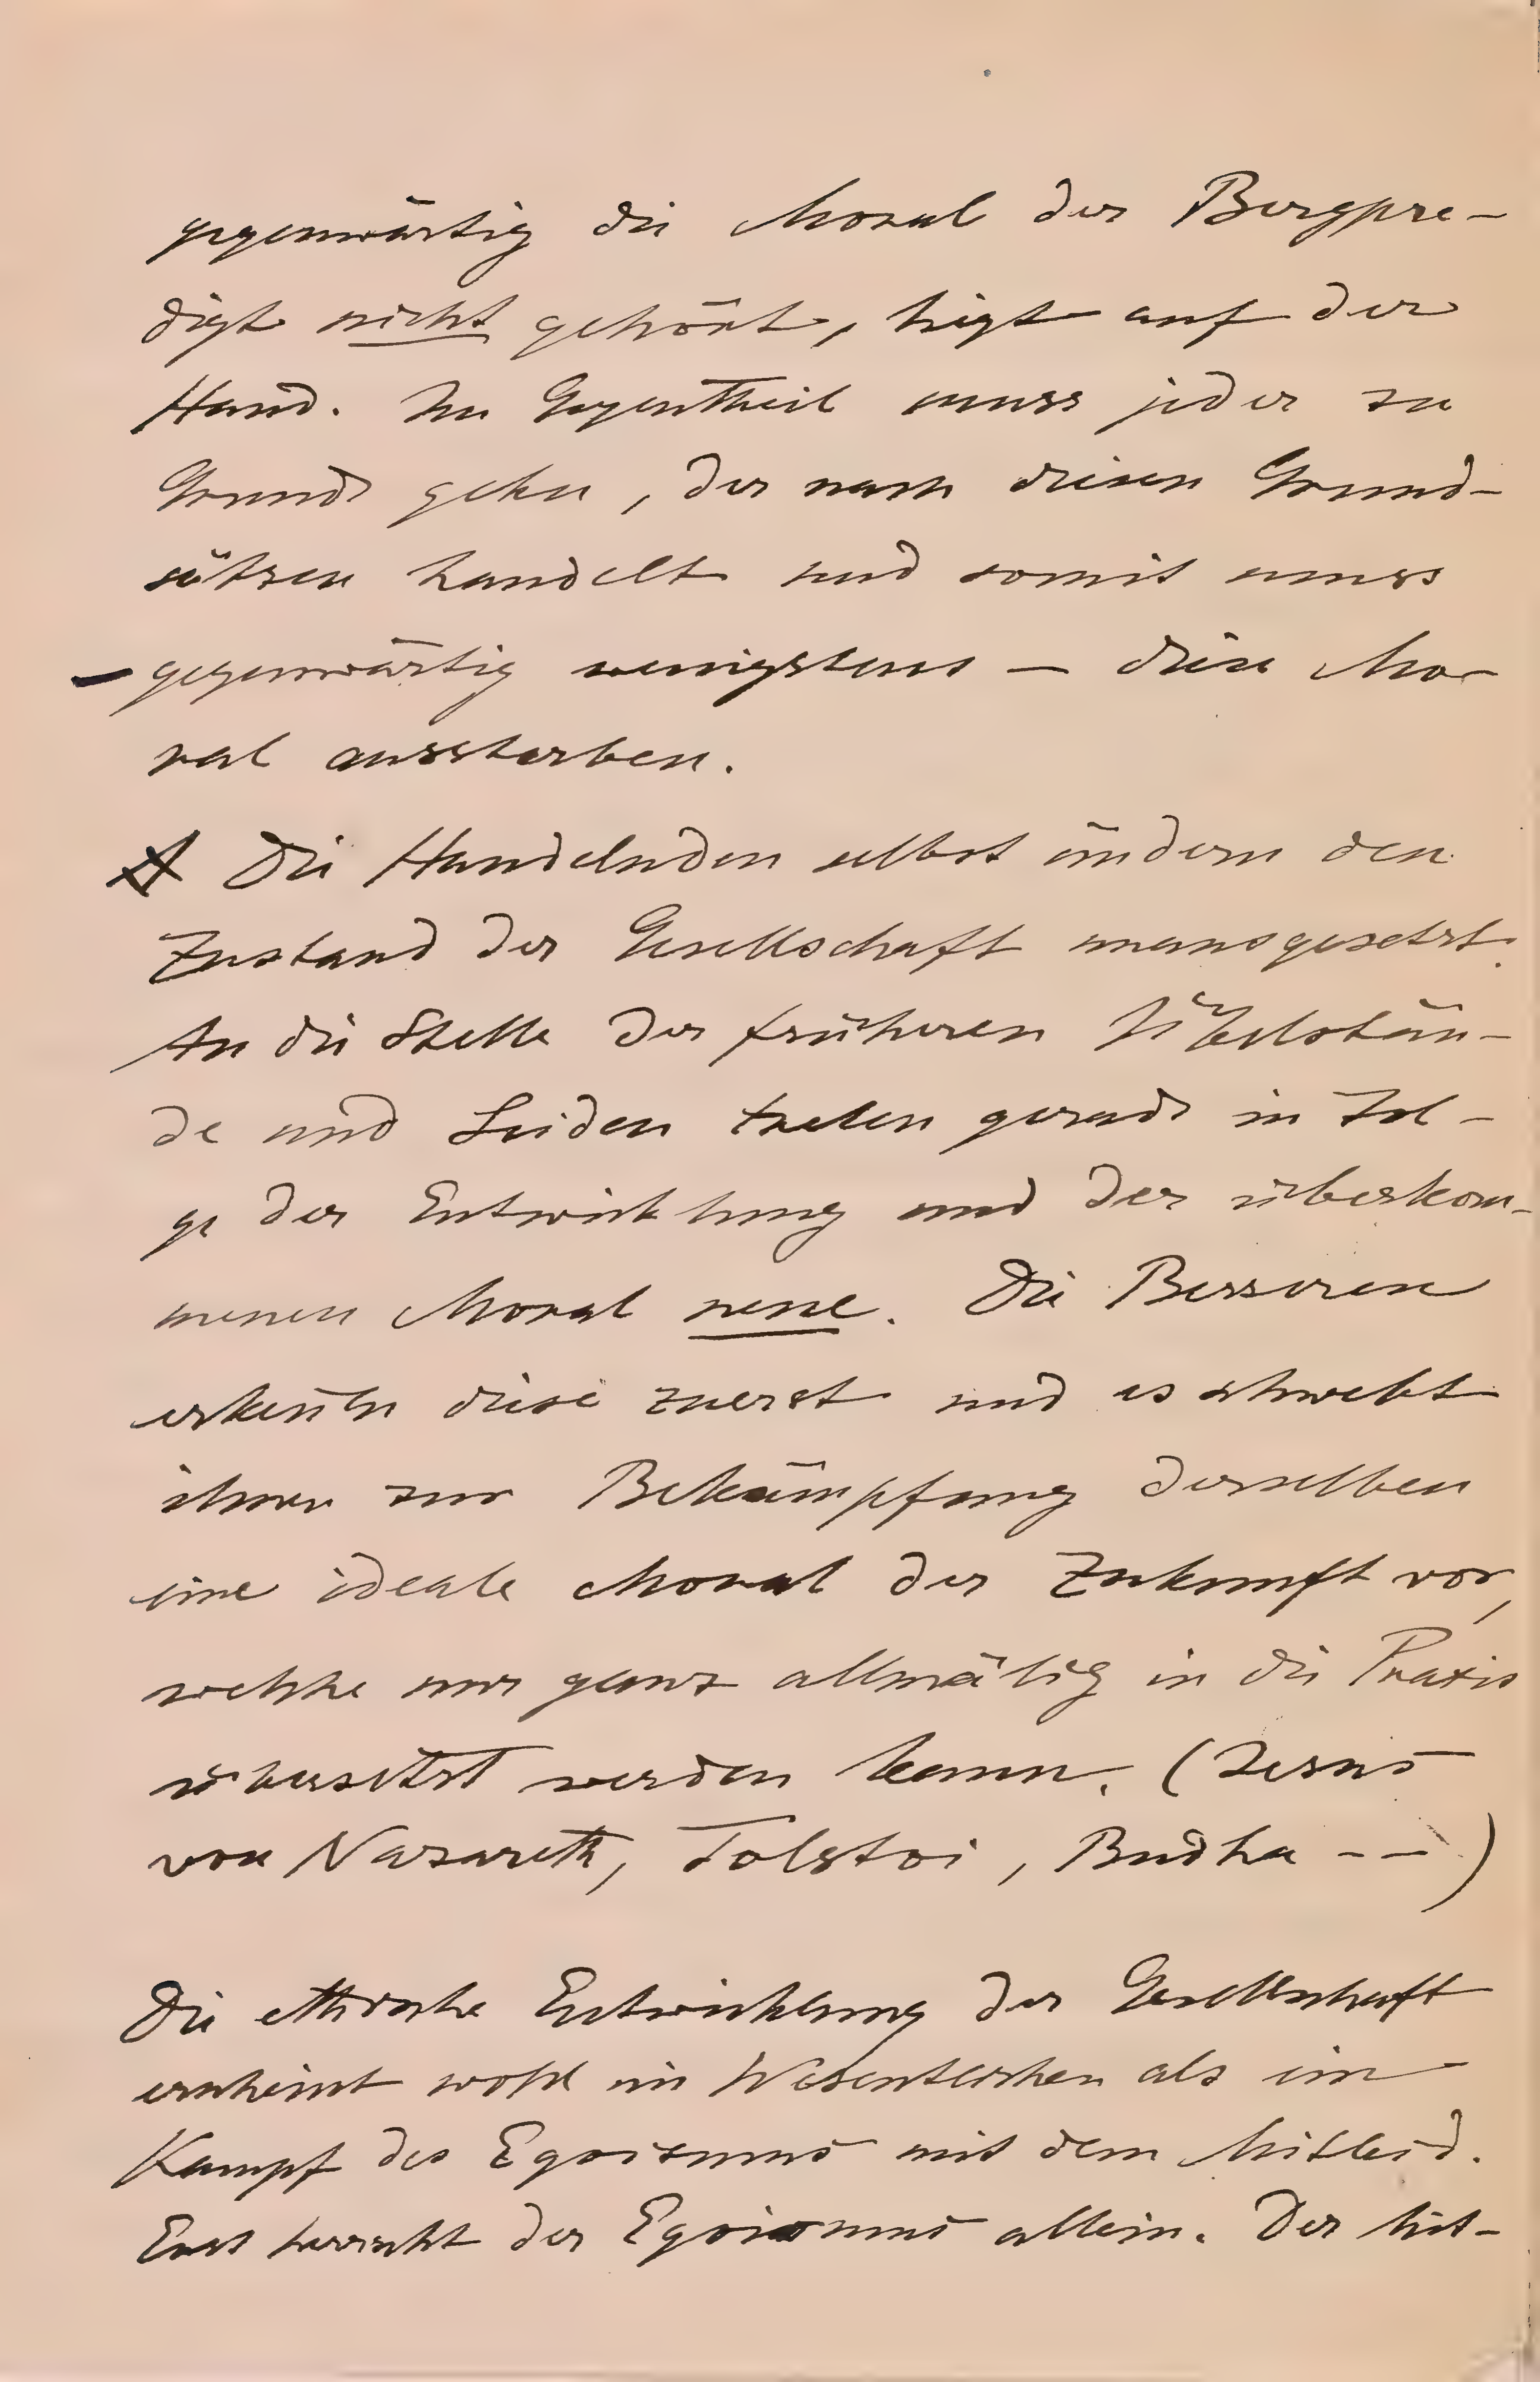 gegenwärtig die Moral der Bergpre-
digt nicht gehört, liegt auf der
Hand. Im Gegentheil muss jeder zu
Grunde gehen, der nach diesen Grund-
sätzen handelt und somit muss
– gegenwärtig wenigstens – diese Mo-
ral aussterben.
Die Handelnden selbst ändern den
Zustand der Gesellschaft unausgesetzt.
An die Stelle der früheren Übelstän-
de und Leiden treten gerade in Fol-
ge der Entwicklung und der überkom-
menen Moral neue. Die Besseren
erkennen diese zuerst und es schwebt
ihnen zur Bekämpfung derselben
eine ideale Moral der Zukunft vor,
welche nur ganz allmälig in die Praxis
übersetzt werden kann. (Jesus
von Nazareth, Tolstoi, Budha -- )
Die ethische Entwicklung der Gesellschaft
erscheint wohl im Wesentlichen als ein
Kampf des Egoismus mit dem Mitleid.
Erst herrscht der Egoismus allein. Der Mit-